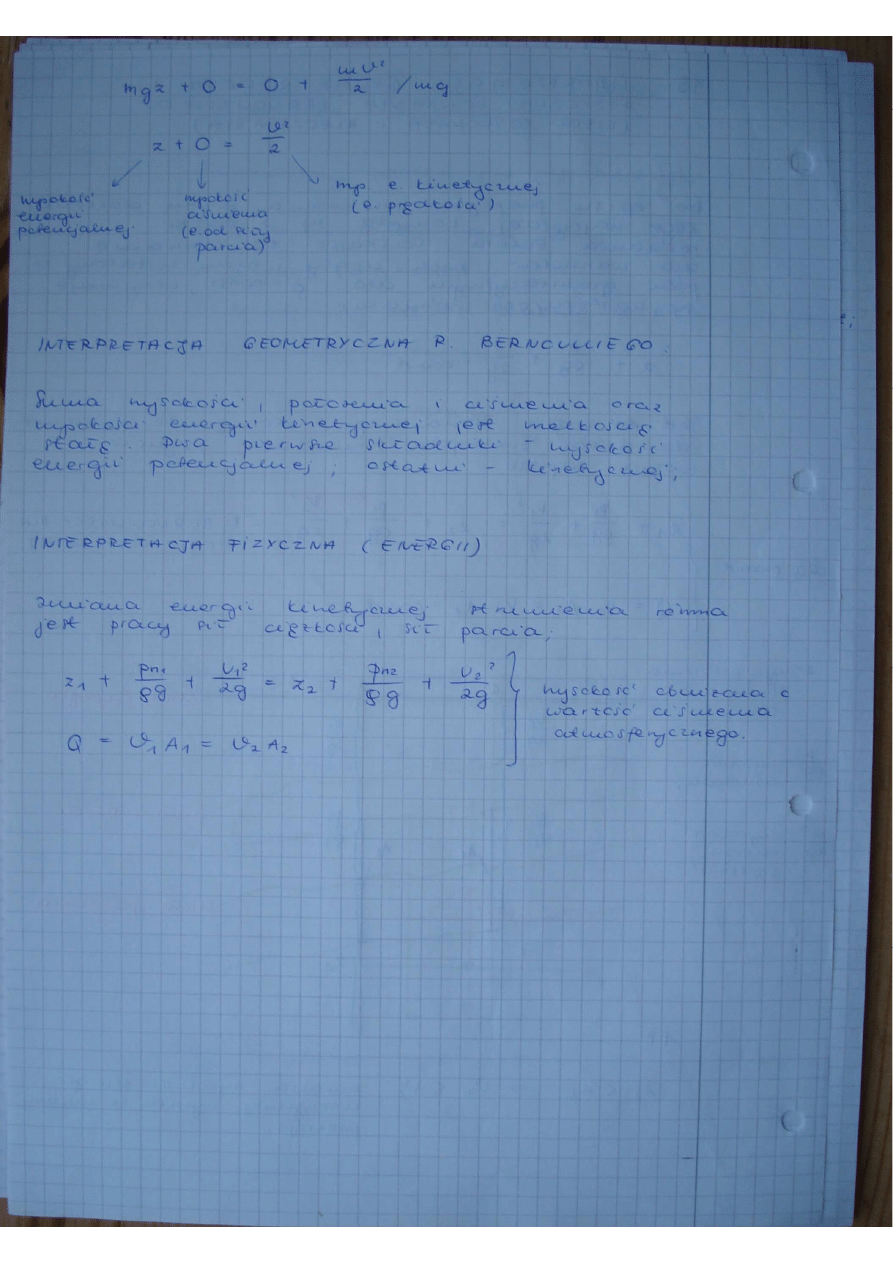 mgz + 0 = 0 + mv²/2 /mg
z + 0 = v²/2
wysokość energii potencjalnej
wysokość ciśnienia (e. od siły parcia)
wys. e. kinetycznej (e. prędkości)
INTERPRETACJA GEOMETRYCZNA R. BERNOULLIEGO.
Suma wysokości, położenia i ciśnienia oraz
wysokości energii kinetycznej jest wielkością
stałą. Dwa pierwsze składniki - wysokość
energii potencjalnej; ostatni - kinetycznej;
INTERPRETACJA FIZYCZNA (ENERGII)
Zmiana energii kinetycznej strumienia równa
jest pracy sił ciężkości, sił parcia;
z₁ + pn₁/ρg + v₁²/2g = z₂ + pn₂/ρg + v₂²/2g
Q = v₁A₁ = v₂A₂
wysokość obniżana o
wartość ciśnienia
atmosferycznego.